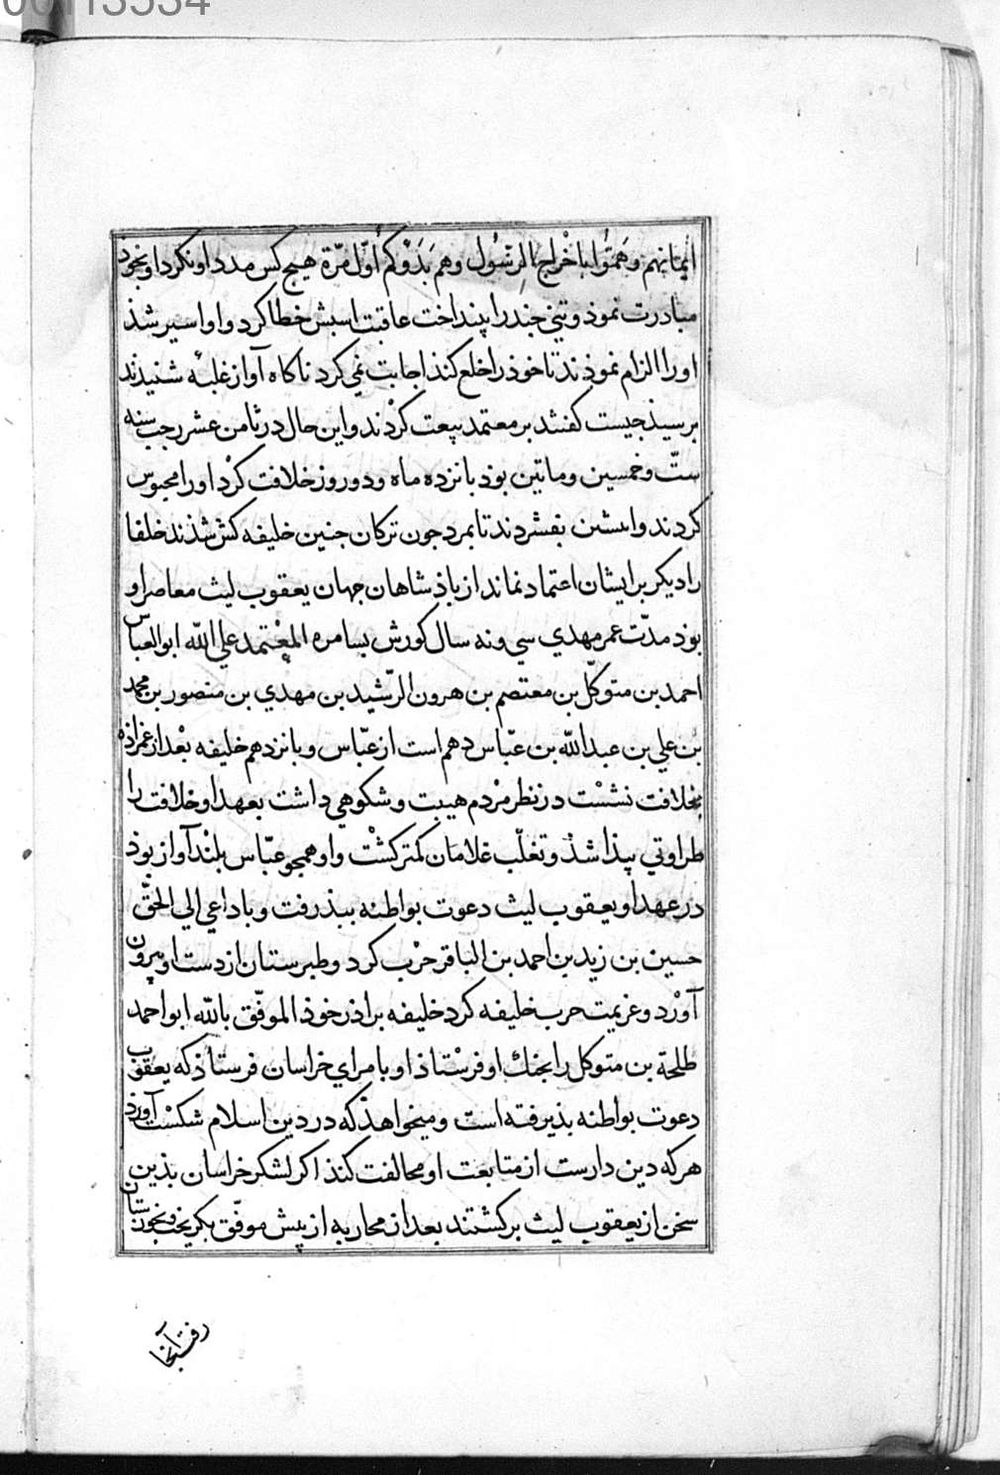 00113534
ایمانهم وَهَمُّوا بِاخْراجِ الرَّسُول وهم بَدَؤکم أوَّل مَرّة هیچ کس مدد او نکرد او بخود
مبادرت نموذ و تنی جند را بینداخت عاقبت اسبش خطا کرد و او اسیر شذ
او را الزام نموذند تا خوذ را خلع کند اجابت نمی کرد ناکاه آواز غلبهٔ شنیدند
برسیذ جیست کفتند بر معتمد بیعت کرْدند و این حال در ثامن عشر رجب سنه
ستّ و خمسین و ماتین بوذ بانزده ماه و دو روز خلافت کرْد او را محبوس
کردند و بفشردند تا بمرد جون ترکان جنین خلیفه کش شذند خلفا
را دیکر بر ایشان اعتماد نماند از باذشاهان جهان یعقوب لیث معاصر او
بوذ مدّت عمر مهدي سي و نه سال کورش بسامره المعْتمد علي الله ابو العباس
احمد بن متوکّل بن معتصم بن هرون الرّشید بن مهدي بن منصور بن محمد
بن علي بن عبد الله بن عبّاس دهم است از عبّاس و بانزدهم خلیفه بعْد از عمزاذه
بخلافت نشسْت در نظر مرْدم هیبت و شکوهي داشت بعهد او خلافت را
طراوتي بیذا شذ و تغلّب غلامان کمتر کشْت و او همجو عبّاس بلنْد آواز بوذ
در عهد او یعقوب لیث دعوت بواطنه ببذرفت و با داعي الي الحقّ
حسین بن زید بن احمد بن الباقر حرْب کرد و طبرستان از دست او بیرون
آورْد و عزیمت حرب خلیفه کرد خلیفه براذر خوذ الموفّق بالله ابو احمد
طلحة بن متوکل را بجنك او فرسْتاذ او بامراي خراسان فرستاذ که یعقوب
دعوت بواطنه بذیرفته است و میخواهذ که در دین اسلام شکسْت آورذ
هر که دین دارست از متابعت او مخالفت کنذ اکر لشکر خراسان بذین
سخن از یعقوب لیث برکشتند بعد از محاربه از پیش موفّق بکریخت و بخوزستان
رفت آنجا